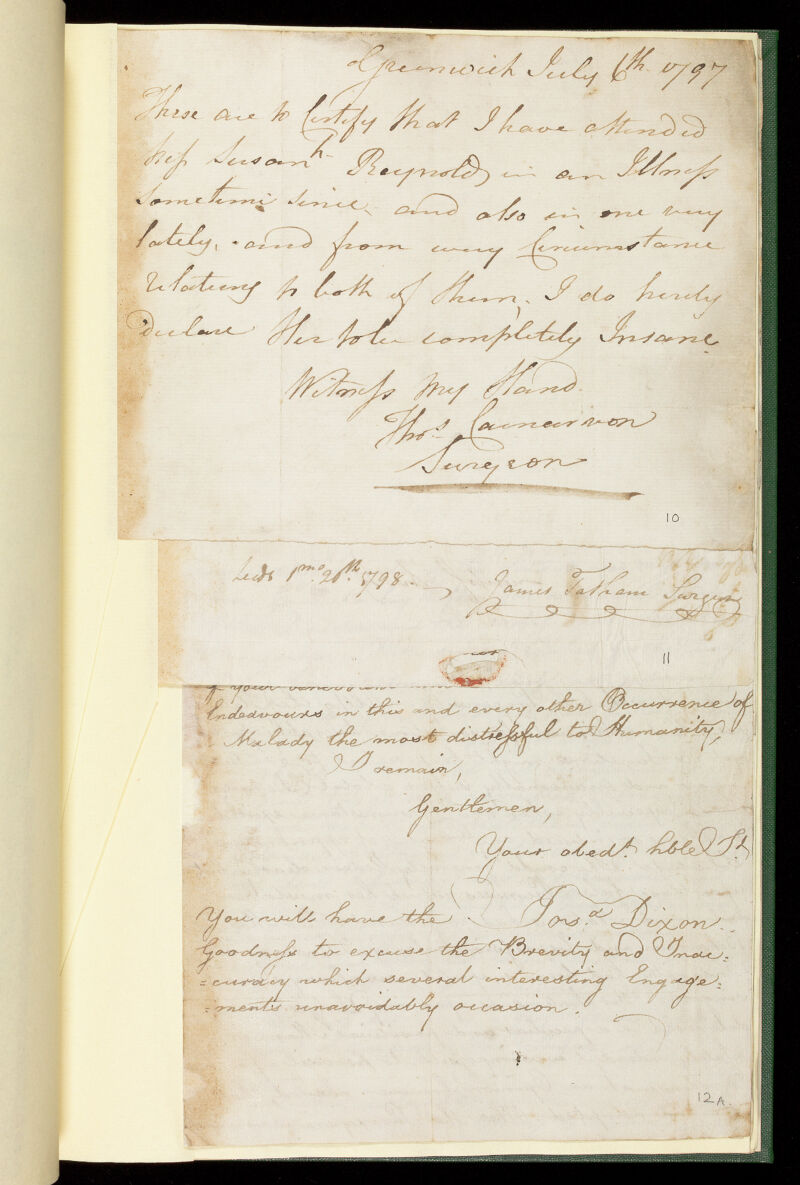 Greenwich July 6th 1797
These are to Certify that I have attended
Miss Susanh Reynolds in an Illness
sometime since, and also in one very
lately, and from every Circumstance
relating to both of them, I do hereby
Declare Her to be completely Insane
Witness My Hand
Thos Caenarvon
Surgeon
10
Leeds 1mo 21th 1798
James Tatham Surgeon
11
of your
Endeavours in this and every other Occurrence of
Malady the most distressful to Humanity,
I remain,
Gentlemen,
Your obedt. hble St
Josa Dixon
You will have the
Goodness to excuse the Brevity and Inac:
:curacy which several interesting Engage:
:ments unavoidably occasion.
12A.